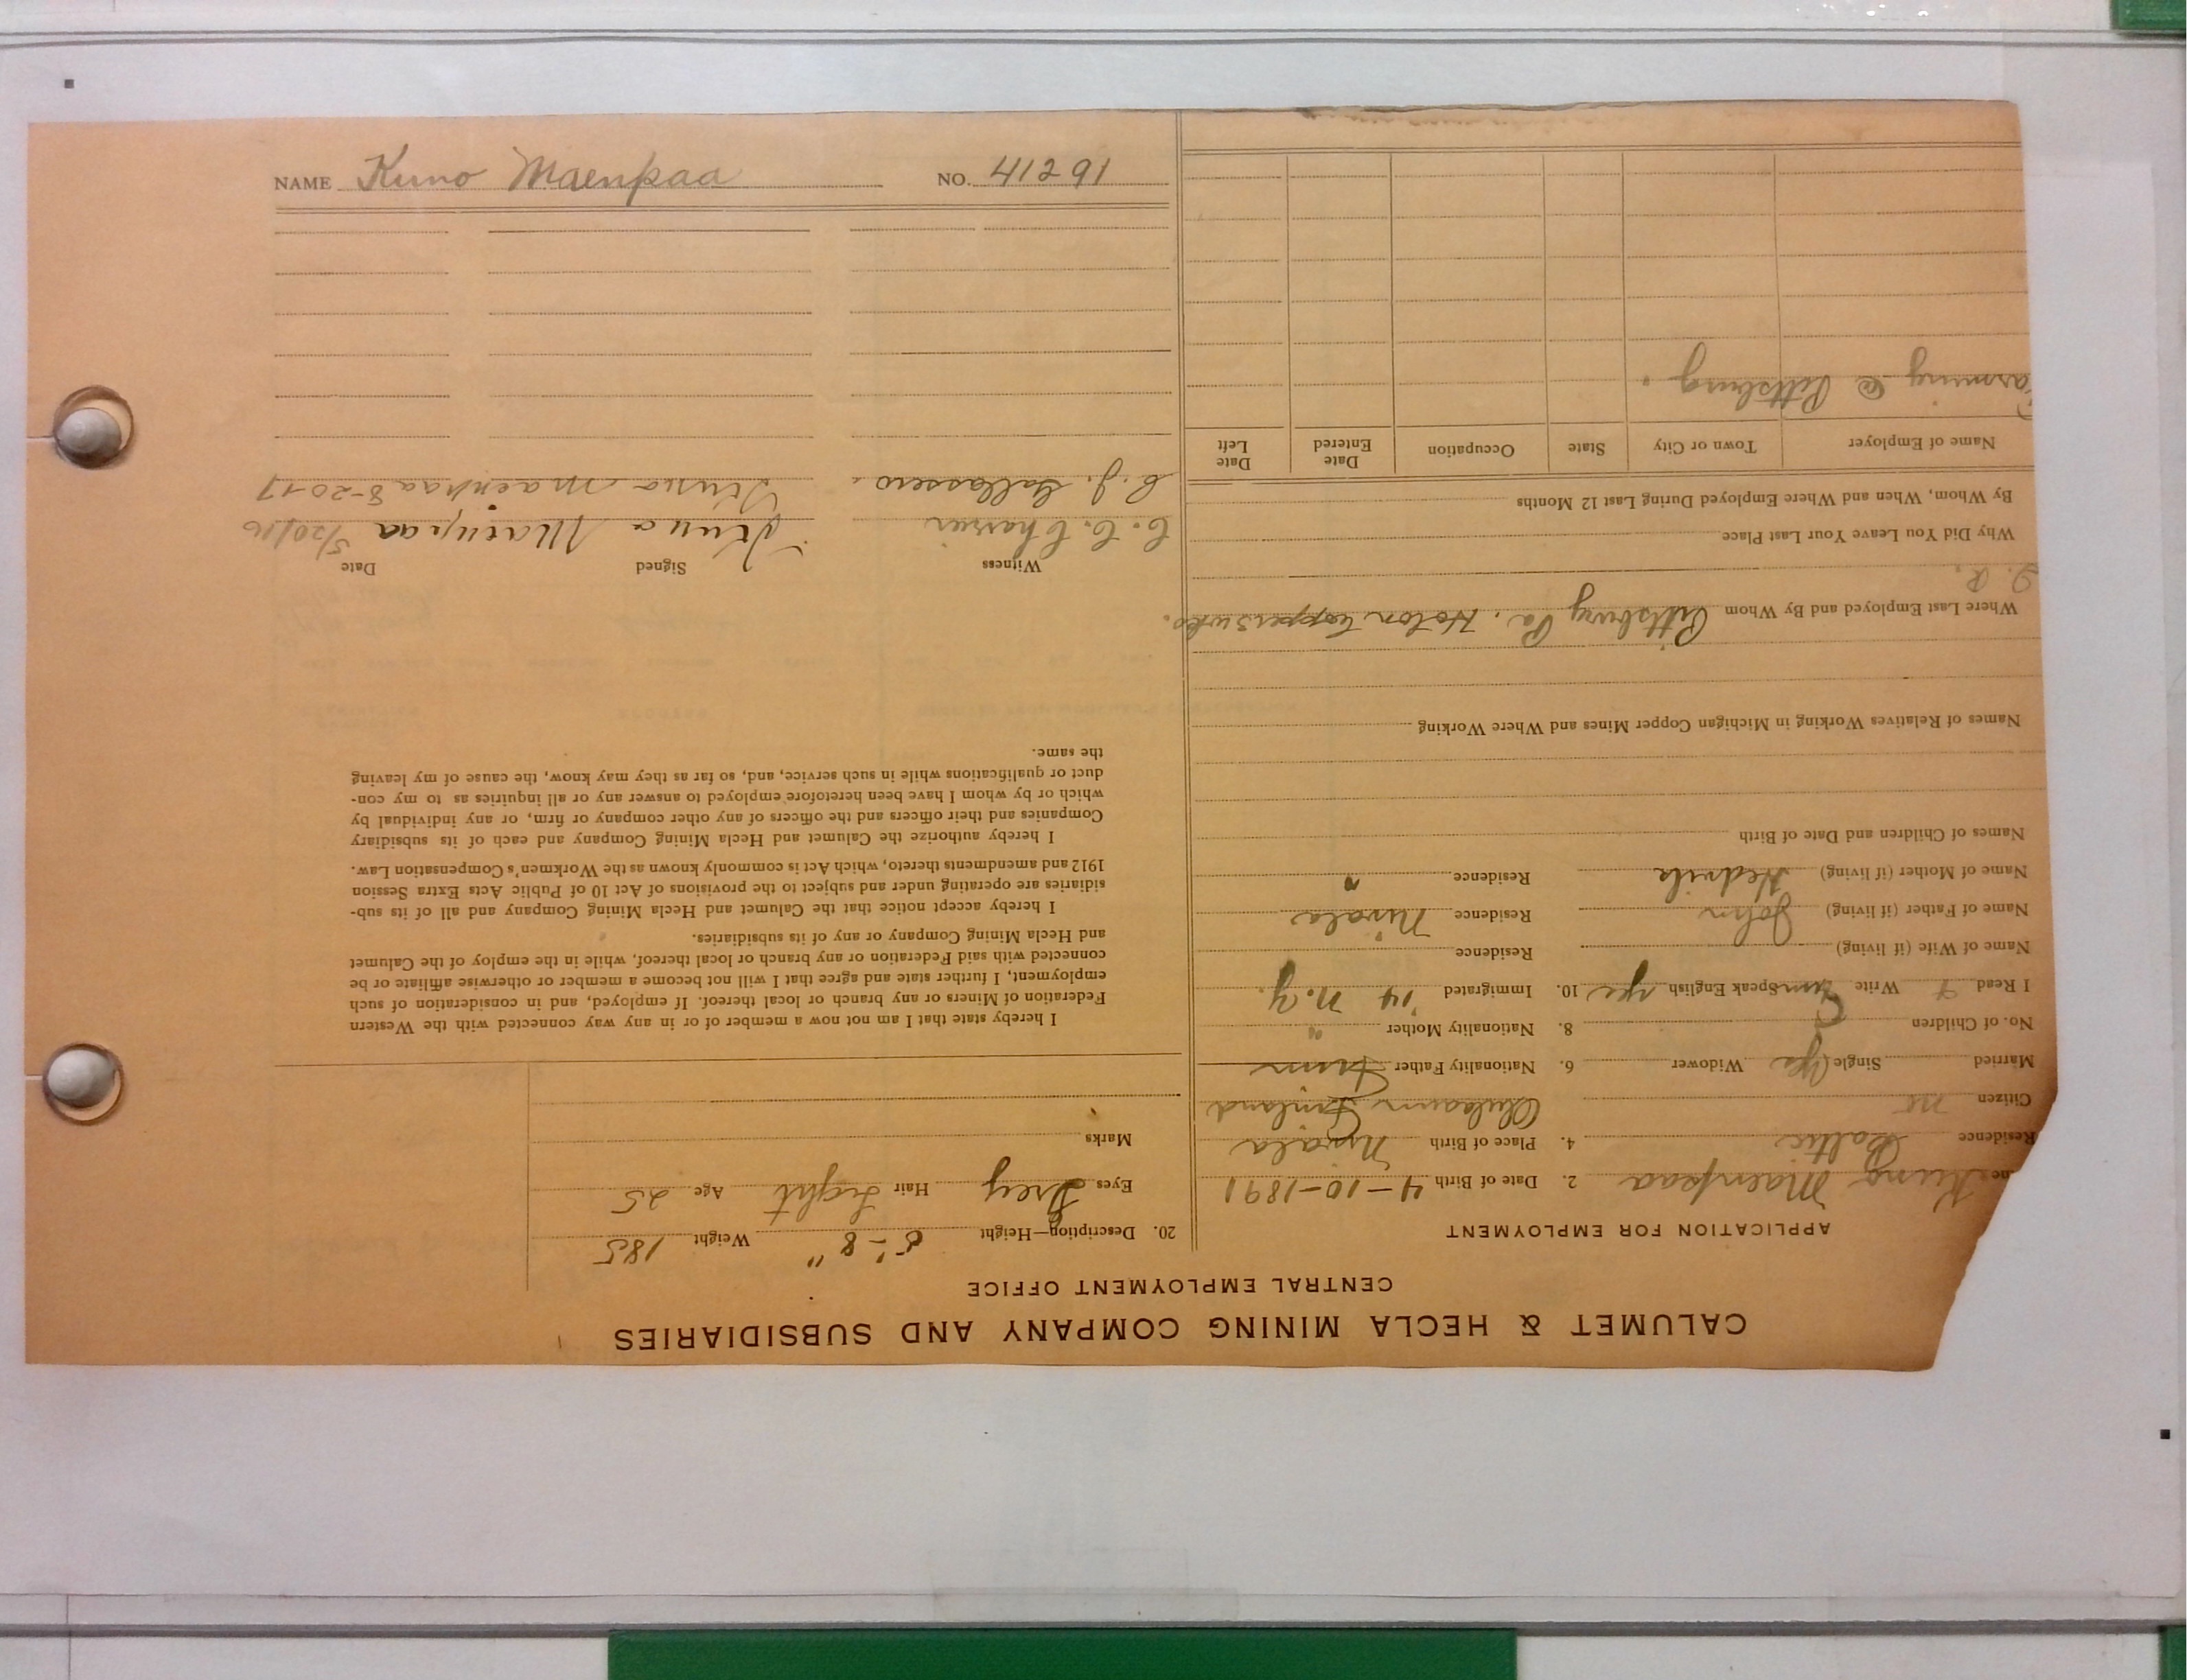 NAME Kuno Maenpaa NO. 41291
CALUMET & HECLA MINING COMPANY AND SUBSIDIARIES
CENTRAL EMPLOYMENT OFFICE
APPLICATION FOR EMPLOYMENT
Kuno Maenpaa 2. Date of Birth 4-10-1891
Residence Baltic 4. Place of Birth Nivala
Citizen no Finland
Married Single yes Widower 6. Nationality Father Finn
No. of Children 8. Nationality Mother "
I Read + Write Finn Speak English yes 10. Immigrated '14 N.Y.
Name of Wife (if living) Residence
Name of Father (if living) John Residence Nivala
Name of Mother (if living) Residence "
Names of Children and Date of Birth
Names of Relatives Working in Michigan Copper Mines and Where Working
Where Last Employed and By Whom Pittsburg Pa.
Why Did You Leave Your Last Place
By Whom, When and Where Employed During Last 12 Months
Name of Employer Town or City State Occupation Date Entered Date Left
Farming @ Pittsburg.
20. Description—Height 5'-8" Weight 185
Eyes Grey Hair Light Age 25
Marks
I hereby state that I am not now a member of or in any way connected with the Western
Federation of Miners or any branch or local thereof. If employed, and in consideration of such
employment, I further state and agree that I will not become a member or otherwise affiliate or be
connected with said Federation or any branch or local thereof, while in the employ of the Calumet
and Hecla Mining Company or any of its subsidiaries.
I hereby accept notice that the Calumet and Hecla Mining Company and all of its sub-
sidiaries are operating under and subject to the provisions of Act 10 of Public Acts Extra Session
1912 and amendments thereto, which Act is commonly known as the Workmen's Compensation Law.
I hereby authorize the Calumet and Hecla Mining Company and each of its subsidiary
Companies and their officers and the officers of any other company or firm, or any individual by
which or by whom I have been heretofore employed to answer any or all inquiries as to my con-
duct or qualifications while in such service, and, so far as they may know, the cause of my leaving
the same.
Witness Signed Date
Kuno Maenpaa 5/20/16
Kuno Maenpaa 8-20-17